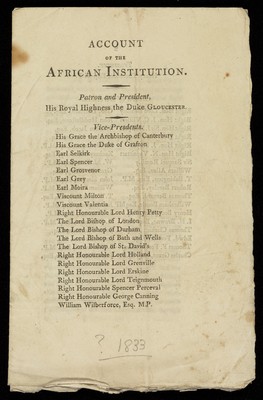 ACCOUNT
OF THE
AFRICAN INSTITUTION.
Patron and President,
His Royal Highness the Duke GLOUCESTER.
Vice-Presidents.
His Grace the Archbishop of Canterbury
His Grace the Duke of Grafton
Earl Selkirk
Earl Spencer
Earl Grosvenor
Earl Grey
Earl Moira
Viscount Milton
Viscount Valentia
Right Honourable Lord Henry Petty
The Lord Bishop of London
The Lord Bishop of Durham
The Lord Bishop of Bath and Wells
The Lord Bishop of St. David's
Right Honourable Lord Holland
Right Honourable Lord Grenville
Right Honourable Lord Erskine
Right Honourable Lord Teignmouth
Right Honourable Spencer Perceval
Right Honourable George Canning
William Wilberforce, Esq. M.P.
? 1833